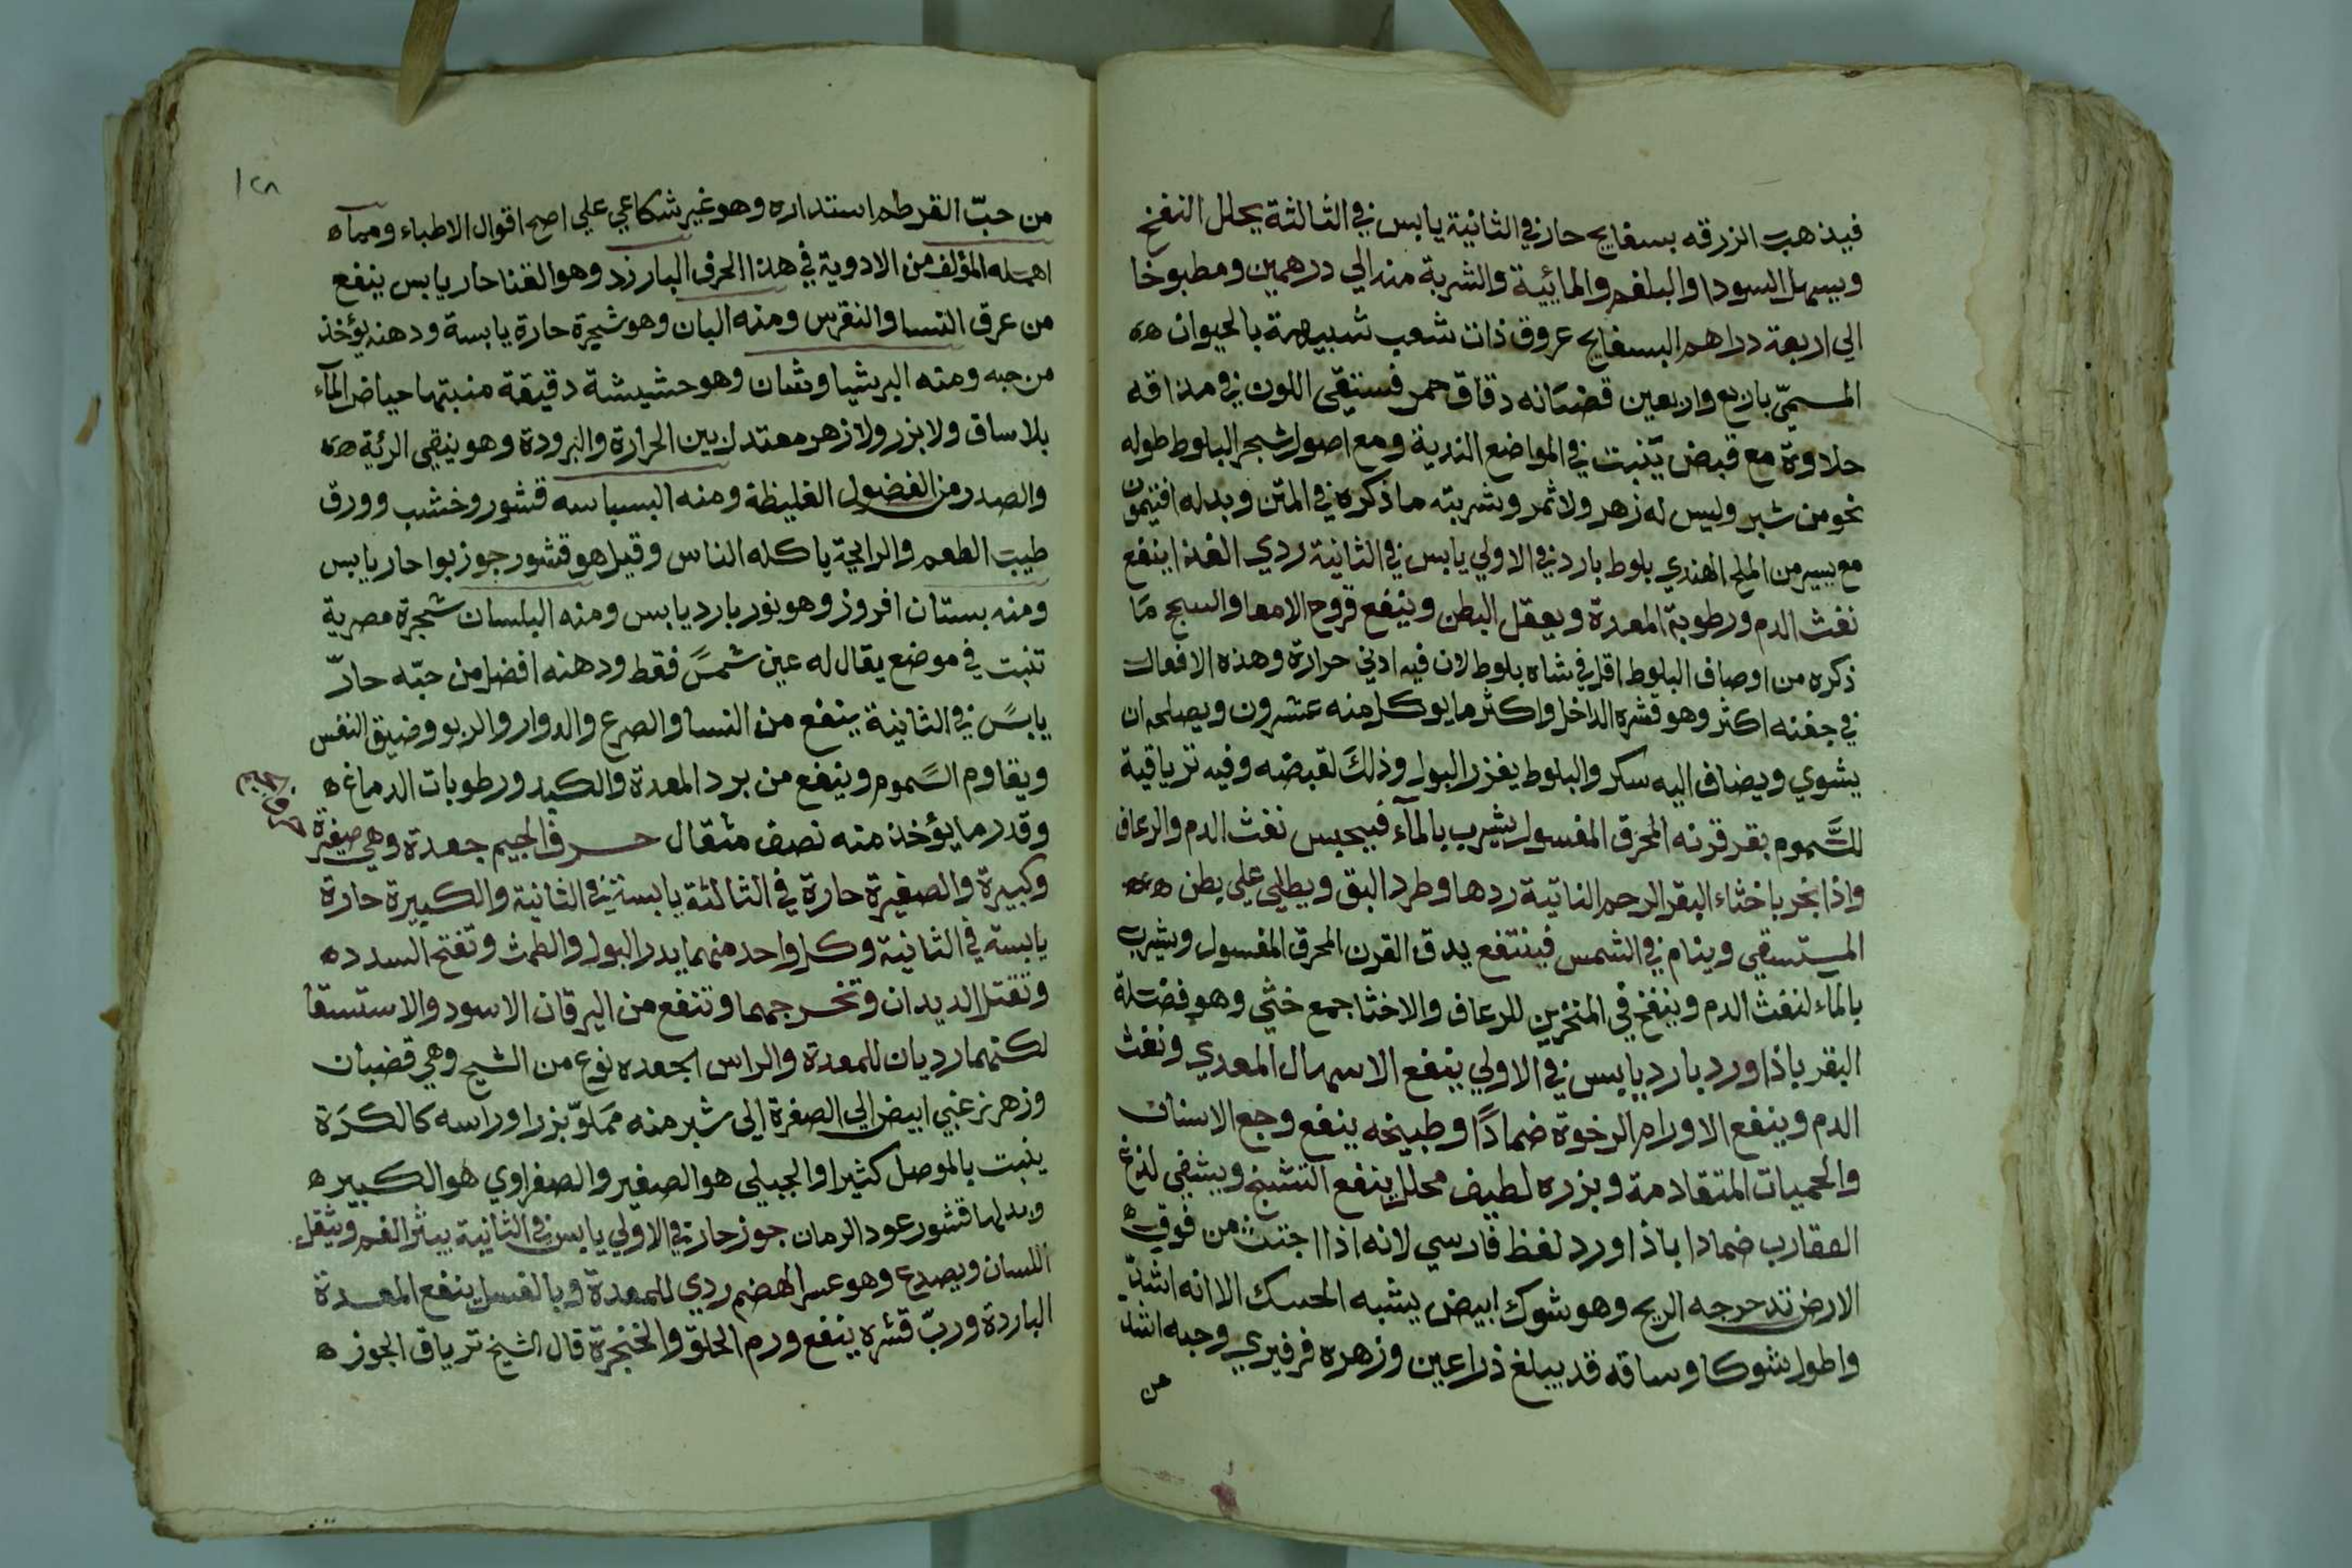 فيذهب الزرقه بسفايج حار في الثانية يابس في الثالثة يحلل النفخ
ويسهل السودا والبلغم والمائية والشربة منه الي درهمين ومطبوخا
الي اربعة دراهم البسفايج عروق ذات شعب شبيهة بالحيوان ه
المسمّي باربع واربعين قضبانه دقاق حمر فستقي اللون في مذاقه
حلاوة مع قبض ينبت في المواضع الندية ومع اصول شجر البلوط طوله
نحو من شبر وليس له زهر ولا ثمر وشربته ما ذكره في المتن وبدله افتيمون
مع يسير من الملح الهندي بلوط بارد في الاولي يابس في الثانية ردي الغذا ينفع
نفث الدم ورطوبة المعدة ويعقل البطن وينفع قروح الامعا والسحج مَا
ذكره من اوصاف البلوط اقل في شاه بلوط لان فيه ادني حرارة وهذه الافعال
في جفنه اكثر وهو قشره الداخل واكثر ما يوكل منه عشرون ويصلحه ان
يشوي ويضاف اليه سكر والبلوط يغزر البول وذلك لقبضه وفيه ترياقية
للسَّموم بقر قرنه المحرق المغسول يشرب بالمآء فيحبس نفث الدم والرعاف
واذا بخر باخثاء البقر الرحم الناتية ردها وطرد البق ويطلي علي بطن ه
المستسقي وينام في الشمس فينتفع يدق القرن المحرق المغسول ويشرب
بالماء لنفث الدم وينفخ في المنخرين للرعاف والاخثا جمع خثي وهو فضلة
البقر باذاورد بارد يابس في الاولي ينفع الاسهال المعدي ونفث
الدم وينفع الاورام الرخوة ضمادًا وطبيخه ينفع وجع الاسنان
والحميات المتقادمة وبزره لطيف محلل ينفع التشنج ويشفي لدغ
العقارب ضمادا باذاورد لفظ فارسي لانه اذا اجتث من فوق ه
الارض تدحرجه الريح وهو شوك ابيض يشبه الحسك الا انه اشدّ
واطول شوكا وساقه قد يبلغ ذراعين وزهره فرفيري وحبه اشد
من
١٢٨
من حبّ القرطم استداره وهو غير شكاعي علي اصح اقوال الاطباء ومما ه
اهمله المؤلف من الادوية في هذا الحرف البارزد وهو القنا حار يابس ينفع
من عرق النسا والنقرس ومنه البان وهو شجرة حارة يابسة ودهنه يؤخذ
من حبه ومنه البرشياوشان وهو حشيشة دقيقة منبتها حياض المآء
بلا ساق ولا بزر ولا زهر معتدل بين الحرارة والبرودة وهو ينقي الرئة ه
والصدر من الفضول الغليظة ومنه البسباسه قشور وخشب وورق
طيب الطعم والرايحة ياكله الناس وقيل هو قشور جوزبوا حار يابس
ومنه بستان افروز وهو نور بارد يابس ومنه البلسان شجرة مصرية
تنبت في موضع يقال له عين شمس فقط ودهنه افضل من حبّه حارّ
يابس في الثانية ينفع من النسا والصرع والدوار والربو وضيق النفس
ويقاوم السّموم وينفع من برد المعدة والكبد ورطوبات الدماغ ه
وقدر ما يؤخذ منه نصف مثقال حرف الجيم جعدة وهي صغيرة
حرف الجيم
وكبيرة والصغيرة حارة في الثالثة يابسة في الثانية والكبيرة حارة
يابسة في الثانية وكل واحد منهما يدر البول والطمث وتفتح السدد ه
وتقتل الديدان وتخرجهما وتنفع من اليرقان الاسود والاستسقا
لكنهما رديان للمعدة والراس الجعده نوع من الشيح وهي قضبان
وزهر زغبي ابيض الي الصفرة الي شبر منه مملوّ بزرا وراسه كالكرَة
ينبت بالموصل كثيرا والجبلي هو الصغير والصفراوي هو الكبير ه
وبدلها قشور عود الرمان جوز حار في الاولي يابس في الثانية يبثر الفم ويثقل
اللسان ويصدع وهو عسر الهضم ردي للمعدة وبالغسل ينفع المعدة
الباردة وربّ قشره ينفع ورم الحلق والحنجرة قال الشيخ ترياق الجوز ه